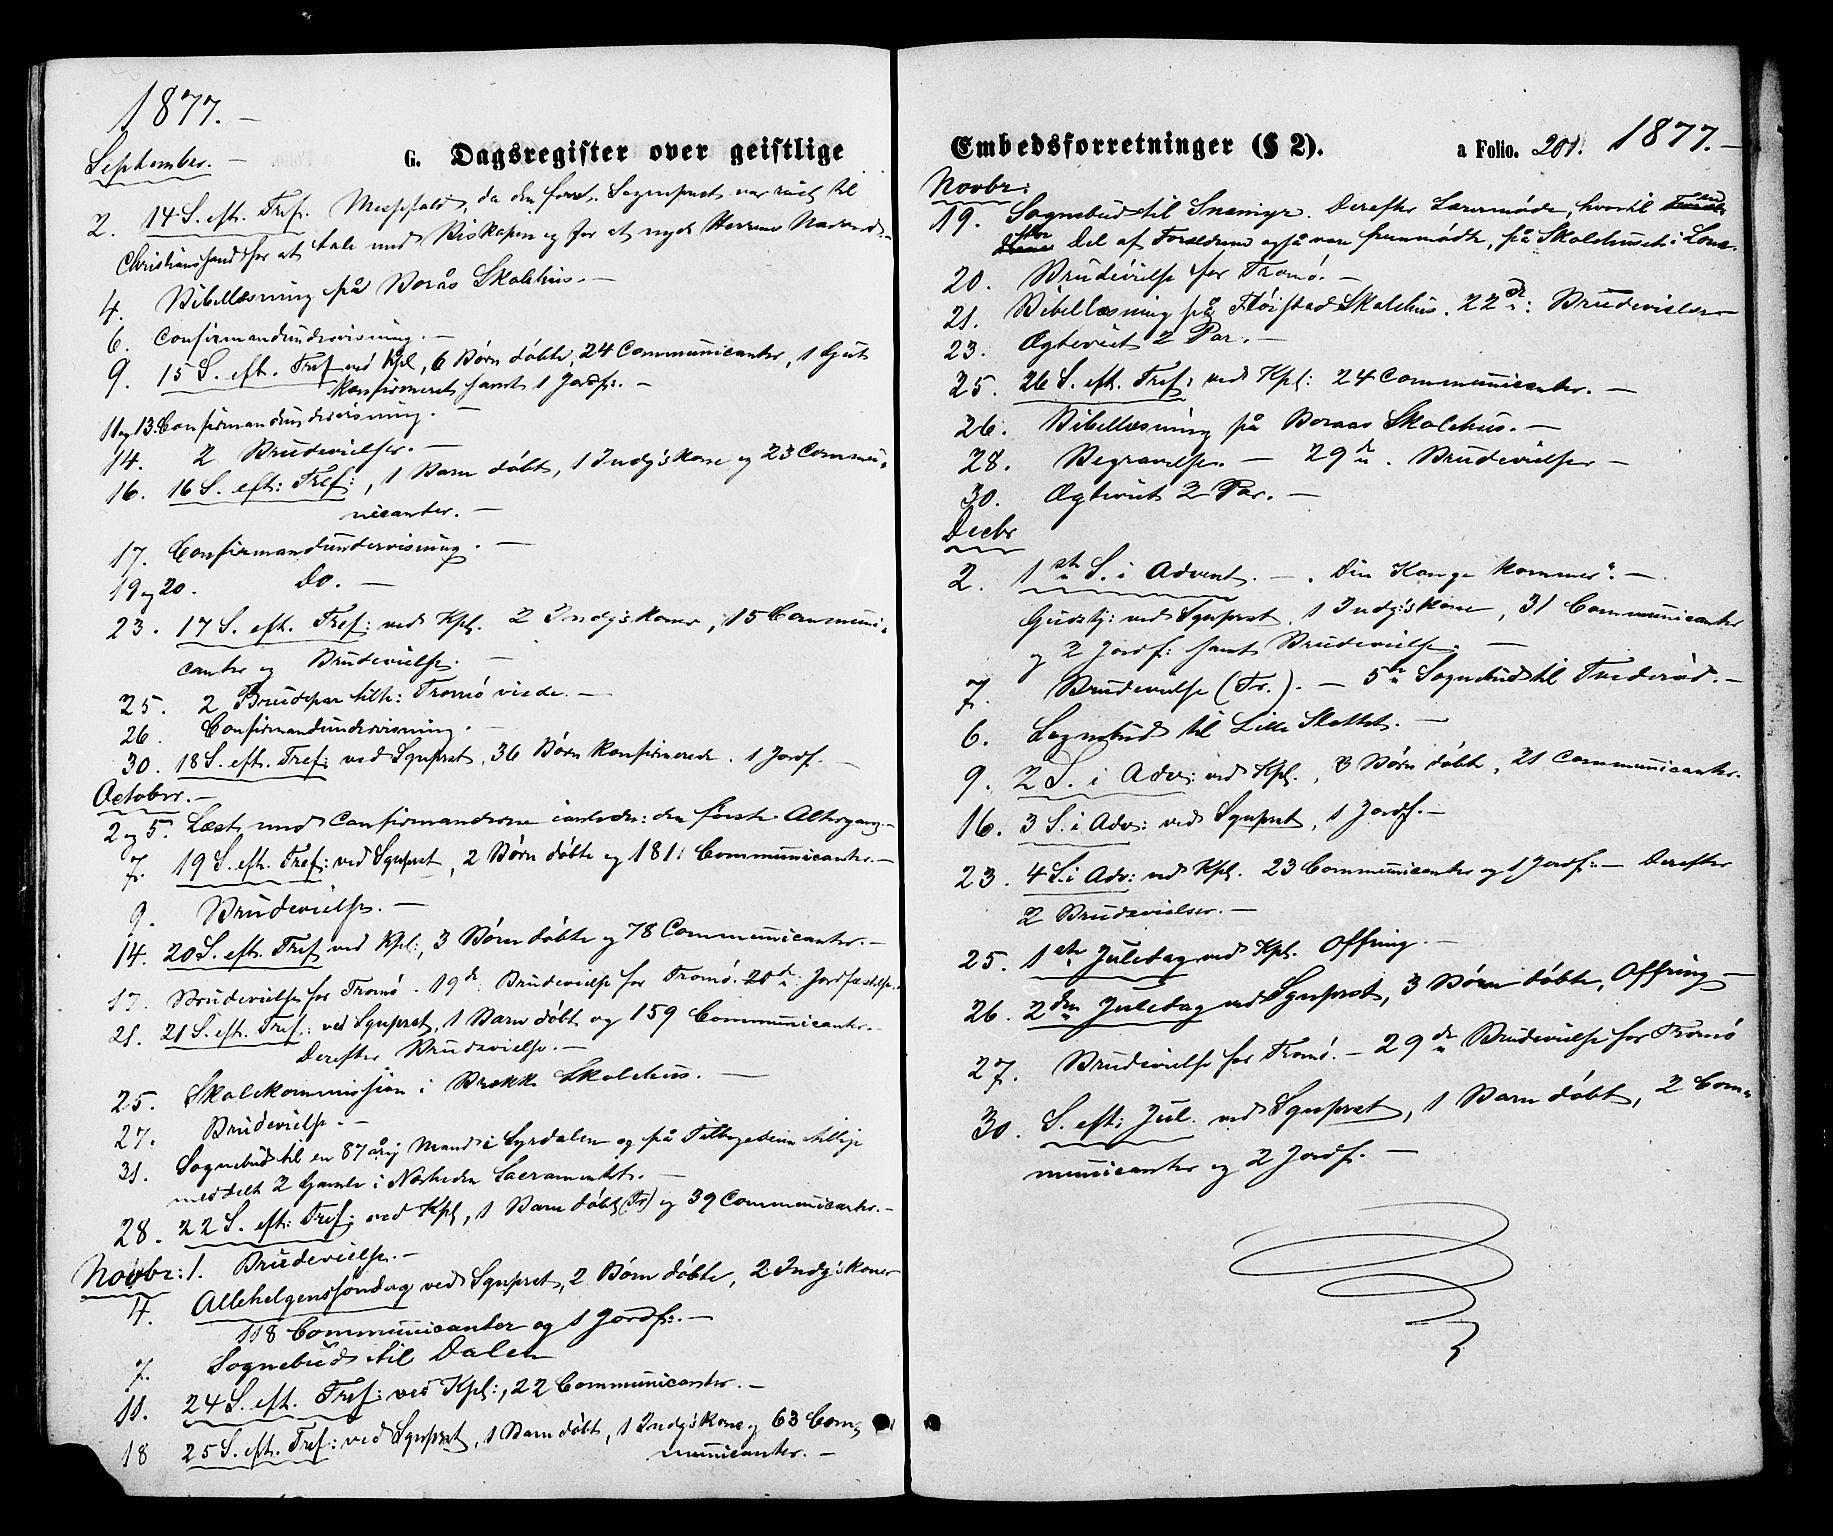 1877.-
September.-
G. Dagsregister over geistlige
2. 14 S. eft. Tref. Messefald, da den  Sognprest var reist til
Christiansand for at tale med Biskopen og for at nyde Herrens Nadverd.-
4. Bibellæsning på Borås Skolehus.-
6. Confirmandundervisning.-
9. 15 S. eft. Tref ved Kpl, 6 Børn døbte, 24 Communicanter, 1 Gut
konfirmeret samt 1 Jordf:.-
11 og 13. Confirmandundervisning.-
14. 2 Brudevielser.-
16. 16 S. eft: Tref:, 1 Barn døbt, 1 Indg's kone og 23 Commu-
nicanter.-
17. Confirmandundervisning.-
19 og 20. Do.-
23. 17 S. eft. Tref: ved Kpl. 2 Indg's koner, 15 Communi-
canter og Brudevielse.-
25. 2 Brudepar tilh: Tromø viede.-
26. Confirmandundervisning.-
30. 18 S. eft. Tref: ved Sgnprst, 36 Børn konfirmerede. 1 Jordf.-
October.-
2 og 5. Læst med Confirmanderne  den første Altergang.-
7. 19 S. eft. Tref: ved Sgnprst, 2 Børn døbte og 181 Communicanter.-
9. Brudevielse.-
14. 20 S. eft. Tref ved Kpl:, 3 Børn døbte og 78 Communicanter.-
17. Brudevielse for Tromø. 19de Brudevielse for Tromø. 20de Jordfæstelse.
21. 21 S. eft. Tref: ved Sgnprst, 1 Barn døbt og 159 Communicanter.-
Derefter Brudevielse.-
25. Skolekommission i Brække Skolehus.-
27. Brudevielse.-
31. Sognebud til en 87 årig Mand i Lyrdalen og på Tilbageveien tillige
meddelt 2 Gamle i Nærheden Sacramentet.-
28. 22 S. eft: Tref: ved Kpl, 1 Barn døbt (Tr) og 39 Communicanter.-
Novbr: 1. Brudevielse.-
4. Allehelgenssøndag ved Sgnprst, 2 Børn døbte, 2 Indg's koner
118 Communicanter og 1 Jordf:.-
7. Sognebud til Dalen
11. 24 S. eft. Tref: ved Kpl:, 22 Communicanter.-
18 25 S. eft. Tref: ved Sgnprst, 1 Barn døbt, 1 Indg's kone og 63 Com-
municanter.-
Embedsforretninger (§ 2).
a Folio. 201. 1877.-
Novbr:
19. Sognebud til Snemyr. Derefter Lærermøde, hvortil en
stor Del af Forældrene også vare fremmødte, på Skolehuset i Lone.
20. Brudevielse for Tromø.-
21. Bibellæsning på Fløistad Skolehus. 22de: Brudevielse.-
23. Ægteviet 2 Par.-
25. 26 S. eft. Tref: ved Kpl: 24 Communicanter.-
26. Bibellæsning på Boraas Skolehus.-
28. Begravelse.- 29de. Brudevielse-
30. Ægteviet 2 Par.-
Decbr
2. 1ste S. i Advent.- "Din Konge kommer".-
Gudstj: ved Sgnprst, 1 Indg's kone, 31 Communicanter
og 2 Jordf: samt Brudevielse.-
7. Brudevielse (Tr.).- 5te Sognebud til Tvederød.-
6. Sognebud til Lille Slottet.-
9. 2 S. i Adv: ved Kpl., 3 Børn døbte, 21 Communicanter.
16. 3 S. i Adv: ved Sgnprst, 1 Jordf.-
23. 4 S. i Adv: ved Kpl. 23 Communicanter og 1 Jordf:- Derefter
2 Brudevielser.-
25. 1ste Juledag ved Kpl. Offring.-
26. 2den Juledag ved Sgnprst, 3 Børn døbte, Offring-
27. Brudevielse for Tromø.- 29de Brudevielse for Tromø
30. S. eft: Jul. ved Sgnprst, 1 Barn døbt, 2 Com-
municanter og 2 Jordf.-